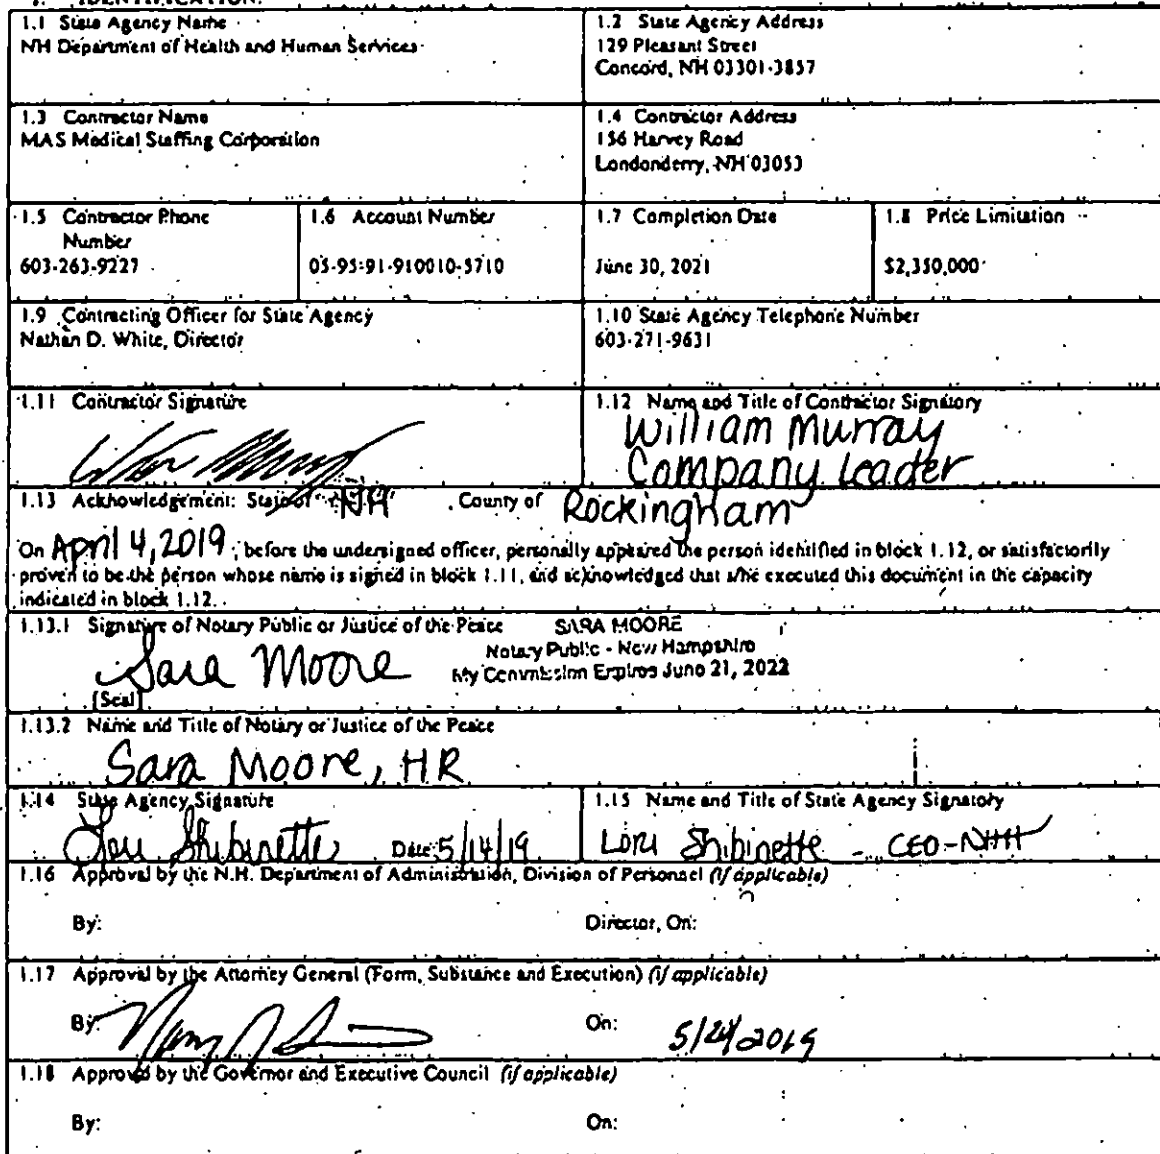 1. IDENTIFICATION.
1.1 State Agency Name
NH Department of Health and Human Services
1.2 State Agency Address
129 Pleasant Street
Concord, NH 03301-3857
1.3 Contractor Name
MAS Medical Staffing Corporation
1.4 Contractor Address
156 Harvey Road
Londonderry, NH 03053
1.5 Contractor Phone
Number
603-263-9227
1.6 Account Number
05-95-91-910010-5710
1.7 Completion Date
June 30, 2021
1.8 Price Limitation
$2,350,000
1.9 Contracting Officer for State Agency
Nathan D. White, Director
1.10 State Agency Telephone Number
603-271-9631
1.11 Contractor Signature
1.12 Name and Title of Contractor Signatory
William Murray
Company Leader
1.13 Acknowledgement: State of NH , County of Rockingham
On April 4, 2019, before the undersigned officer, personally appeared the person identified in block 1.12, or satisfactorily
proven to be the person whose name is signed in block 1.11, and acknowledged that s/he executed this document in the capacity
indicated in block 1.12.
1.13.1 Signature of Notary Public or Justice of the Peace
SARA MOORE
Notary Public - New Hampshire
My Commission Expires June 21, 2022
Sara Moore
[Seal]
1.13.2 Name and Title of Notary or Justice of the Peace
Sara Moore, HR
1.14 State Agency Signature
Lori Shibinette Date: 5/14/19
1.15 Name and Title of State Agency Signatory
Lori Shibinette - CEO-NHH
1.16 Approval by the N.H. Department of Administration, Division of Personnel (if applicable)
By: Director, On:
1.17 Approval by the Attorney General (Form, Substance and Execution) (if applicable)
By: On: 5/24/2019
1.18 Approved by the Governor and Executive Council (if applicable)
By: On: